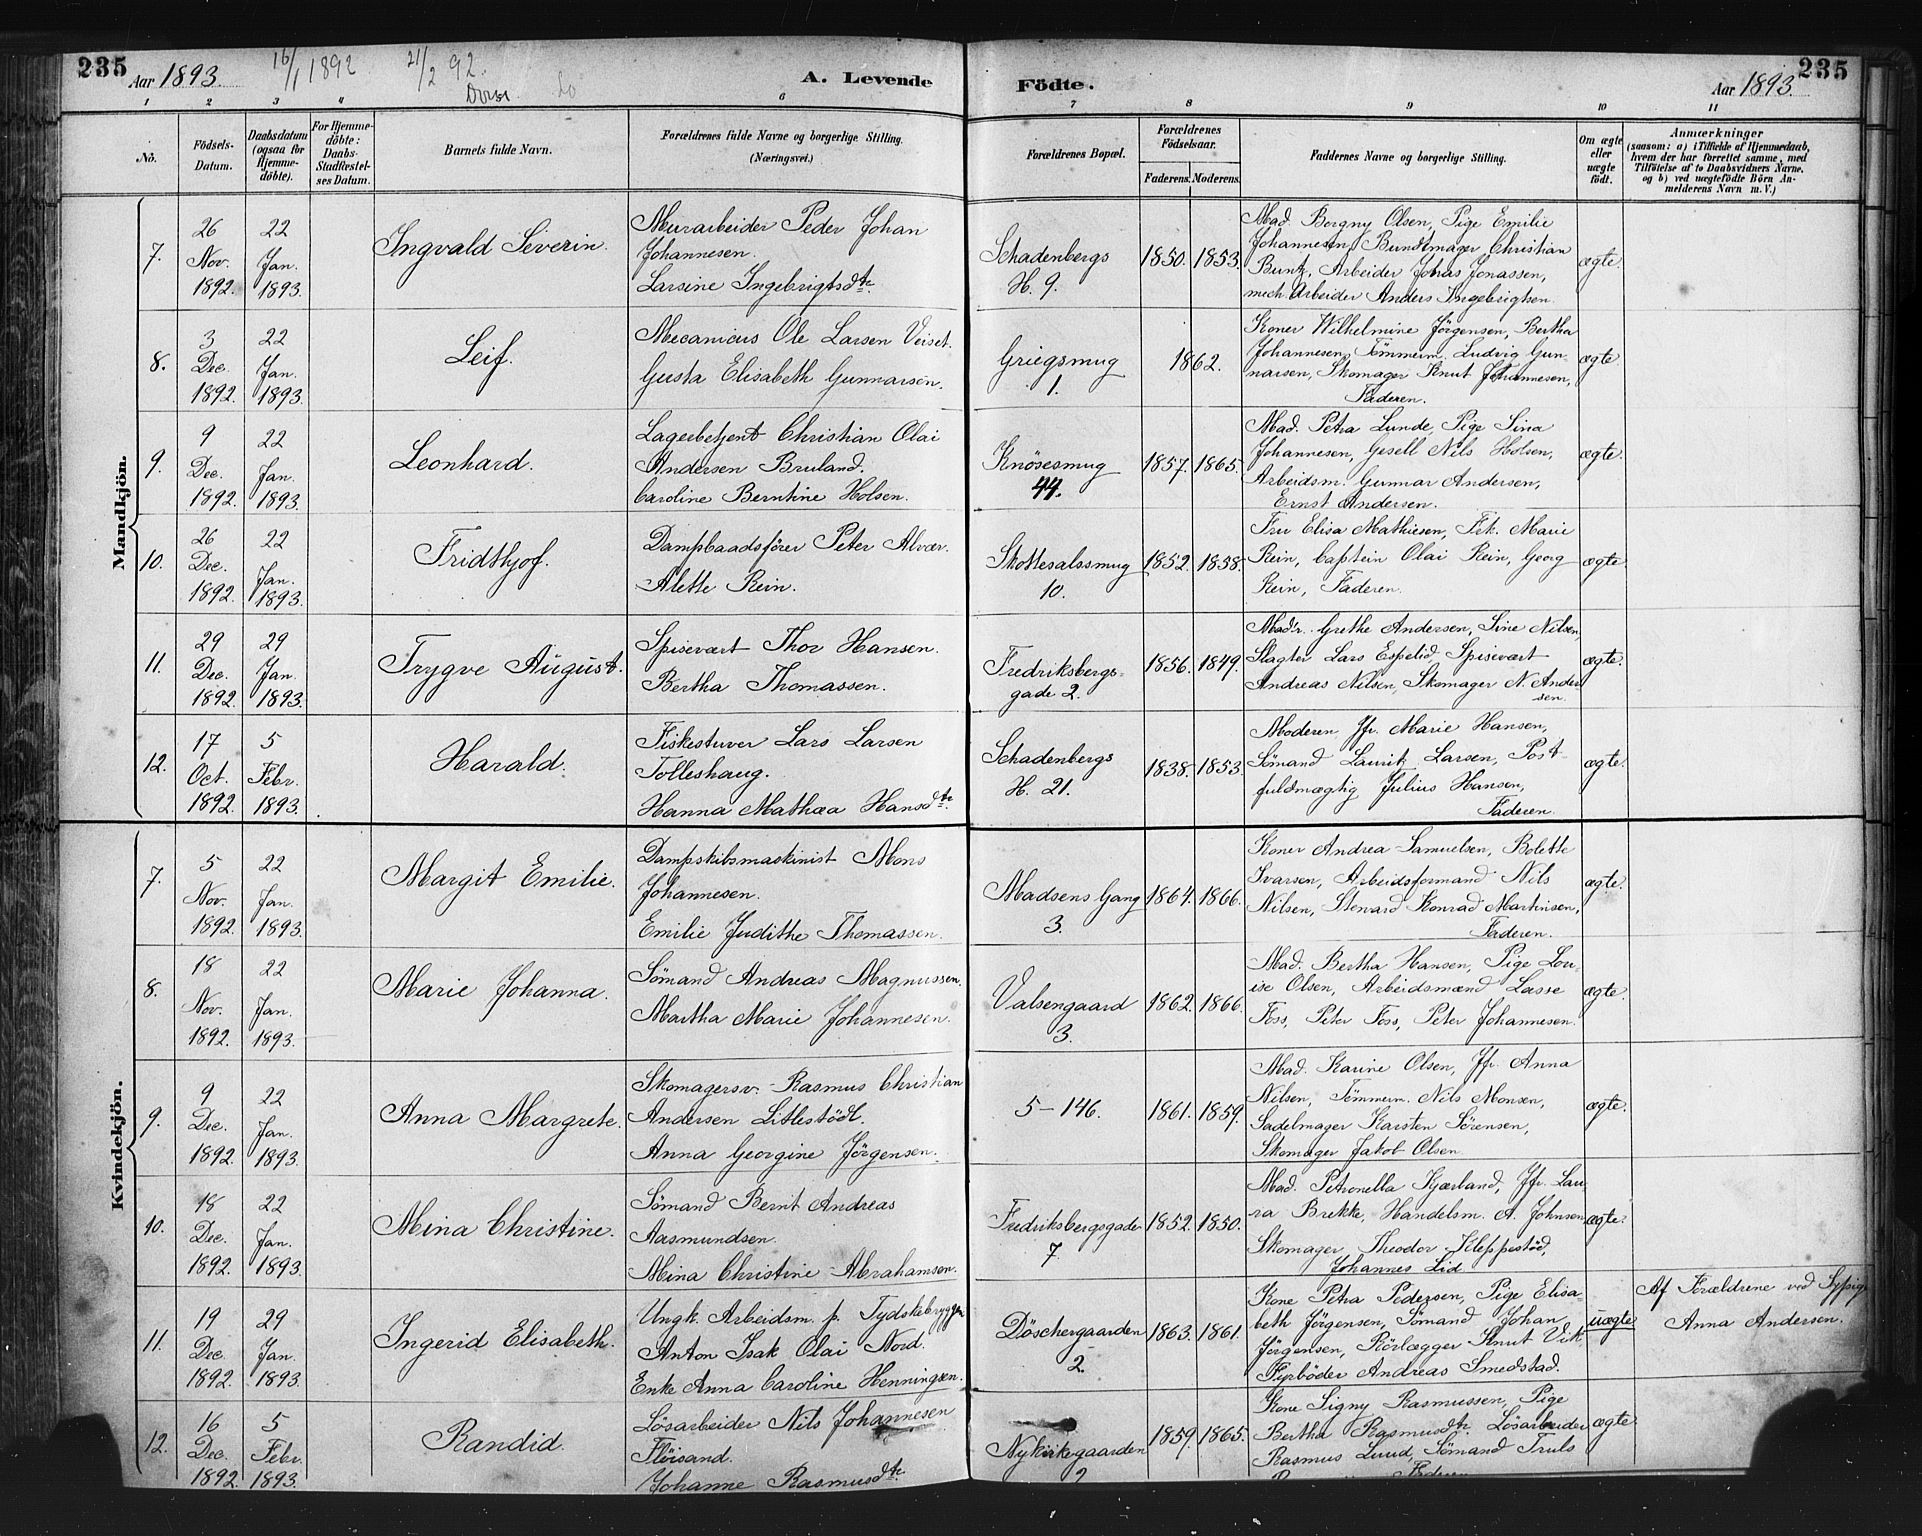 235
Aar 1893.
16/1 1892
21/2 92.
do
A. Levende
Födte.
Aar 1893.
235
1
2
3
4
6
7
8
9
10
11
No.
Födsels-
Datum.
Daabsdatum
(ogsaa for
Hjemme-
döbte).
For Hjemme-
döbte:
Daabs-
Stadfæstel-
ses Datum.
Barnets fulde Navn.
Forældrenes fulde Navne og borgerlige Stilling.
(Næringsvei.)
Forældrenes Bopæl.
Forældrenes
Födselsaar.
Faderens.
Moderens.
Faddernes Navne og borgerlige Stilling.
Om ægte
eller
uægte
födt.
Anmærkninger
(saasom: a) i Tilfælde af Hjemmedaab,
hvem der har forrettet samme, med
Tilföielse af to Daabsvidners Navne,
og b) ved uægtefödte Börn An-
melderens Navn m. V.)
Mandkjön.
7.
26
Nov.
1892.
22
Jan.
1893.
Ingvald Severin.
Murarbeider Peder Johan
Johannesen.
Larsine Ingebrigtsdtr.
Schadenbergs
H. 9.
1850.
1853.
Mad. Borgny Olsen, Pige Emilie
Johannesen, Bundtmager Christian
Buntz, Arbeider Johas Jonassen,
mech. Arbeider Anders Ingebrigtsen.
ægte.
8.
3
Dec.
1892.
22
Jan.
1893.
Leif.
Mecanicus Ole Larsen Veiset.
Gusta Elisabeth Gunnarsen.
Griegsmug
1.
1862.
Koner Wilhelmine Jörgensen, Bertha
Johannesen, Tömmerm. Ludvig Gun-
narsen, Skomager Knut Johannesen,
Faderen.
ægte.
9.
9
Dec.
1892.
22
Jan.
1893.
Leonhard.
Lagerbetjent Christian Olai
Andersen Bruland.
Caroline Berntine Holsen.
Knösesmug
44.
1857.
1865.
Mad. Petra Lunde, Pige Sina
Johannesen, Gesell Nils Holsen,
Arbeidsm. Gunnar Andersen,
Ernst Andersen.
ægte.
10.
26
Dec.
1892.
22
Jan.
1893.
Fridthjof.
Dampbaadsförer Peter Alvær.
Alette Rein.
Skottesalssmug
10.
1852.
1858.
Fru Elisa Mathiesen, Frk. Marie
Rein, Captein Olai Rein, Georg
Rein, Faderen.
ægte.
11.
29
Dec.
1892.
29
Jan.
1893.
Trygve August.
Spisevært Thor Hansen.
Bertha Thomassen.
Fredriksbergs-
gade 2.
1856.
1849.
Madr. Grethe Andersen, Sine Nilsen,
Slagter Lars Espelid, Spisevært
Andreas Nilsen, Skomager N. Ander
sen.
ægte.
12.
17
Oct.
1892.
5
Febr.
1893.
Harald.
Fiskestuver Lars Larsen
Tolleshaug.
Hanna Mathea Hansdtr.
Schadenbergs
H. 21.
1838.
1853.
Moderen, Jfr. Marie Hansen,
Sömand Lauritz Larsen, Post-
fuldmægtig Julius Hansen,
Faderen.
ægte.
Kvindekjön.
7.
5
Nov.
1892.
22
Jan.
1893.
Margit Emilie.
Dampskibsmaskinist Mons
Johannesen.
Emilie Judithe Thomassen.
Madsens Gang
3.
1864.
1866.
Koner Andrea Samuelsen, Bolette
Ivarsen, Arbeidsformand Nils
Nilsen, Stenard Konrad Martinsen,
Faderen.
ægte.
8.
18
Nov.
1892.
22
Jan.
1893.
Marie Johanna.
Sömand Andreas Magnussen.
Martha Marie Johannesen.
Valsengaard
3.
1862.
1866.
Mad. Bertha Hansen, Pige Lou-
ise Olsen, Arbeidsmænd Lasse
Foss, Peter Foss, Peter Johannesen.
ægte.
9.
9
Dec.
1892.
22
Jan.
1893.
Anna Margrete.
Skomagersv. Rasmus Christian
Andersen Litlestödl.
Anna Georgine Jörgensen.
5-146.
1861.
1859.
Mad. Karine Olsen, Jfr. Anna
Nilsen, Tömmerm. Nils Monsen,
Sadelmager Karsten Sörensen,
Skomager Jakob Olsen.
ægte.
10.
18
Dec.
1892.
22
Jan.
1893.
Mina Christine.
Sömand Bernt Andreas
Aasmundsen.
Mina Christine Abrahamsen.
Fredriksbergsgade
7.
1852.
1850.
Mad. Petronella Kjærland, Jfr. Lau-
ra Brekke, Handelsm. A. Johnsen,
Skomager Theodor Kleppestöd,
Johannes Lid
ægte.
11.
19
Dec.
1892.
29
Jan.
1893.
Ingerid Elisabeth.
Ungk. Arbeidsm. p. Tydskebryggen
Anton Isak Olai Nord.
Enke Anna Caroline Henningsen.
Döschergaarden
2.
1863.
1861.
Kone Petra Pedersen, Pige Elisa-
beth Jörgensen, Sömand Johan
Jörgensen, Rörlægger Knut Vik
Fyrböder Andreas Smedstad.
uægte
Af Forældrene ved Sypige
Anna Andersen.
12.
16
Dec.
1892.
5
Febr.
1893.
Randid.
Lösarbeider Nils Johannesen
Flöisand.
Johanne Rasmusdtr.
Nykirkegaarden
2
1859.
1865.
Kone Signy Rasmussen, Pige
Bertha Rasmusdtr. Lösarbeider
Rasmus Lund, Sömand Truls
Faderen
ægte